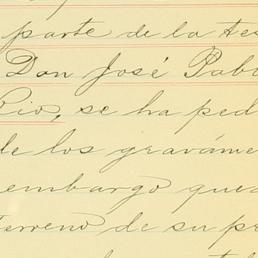 parte de la tes
Don José Pabl
Rio, se ha ped
de los graváme
embargo qued
terreno de su pr